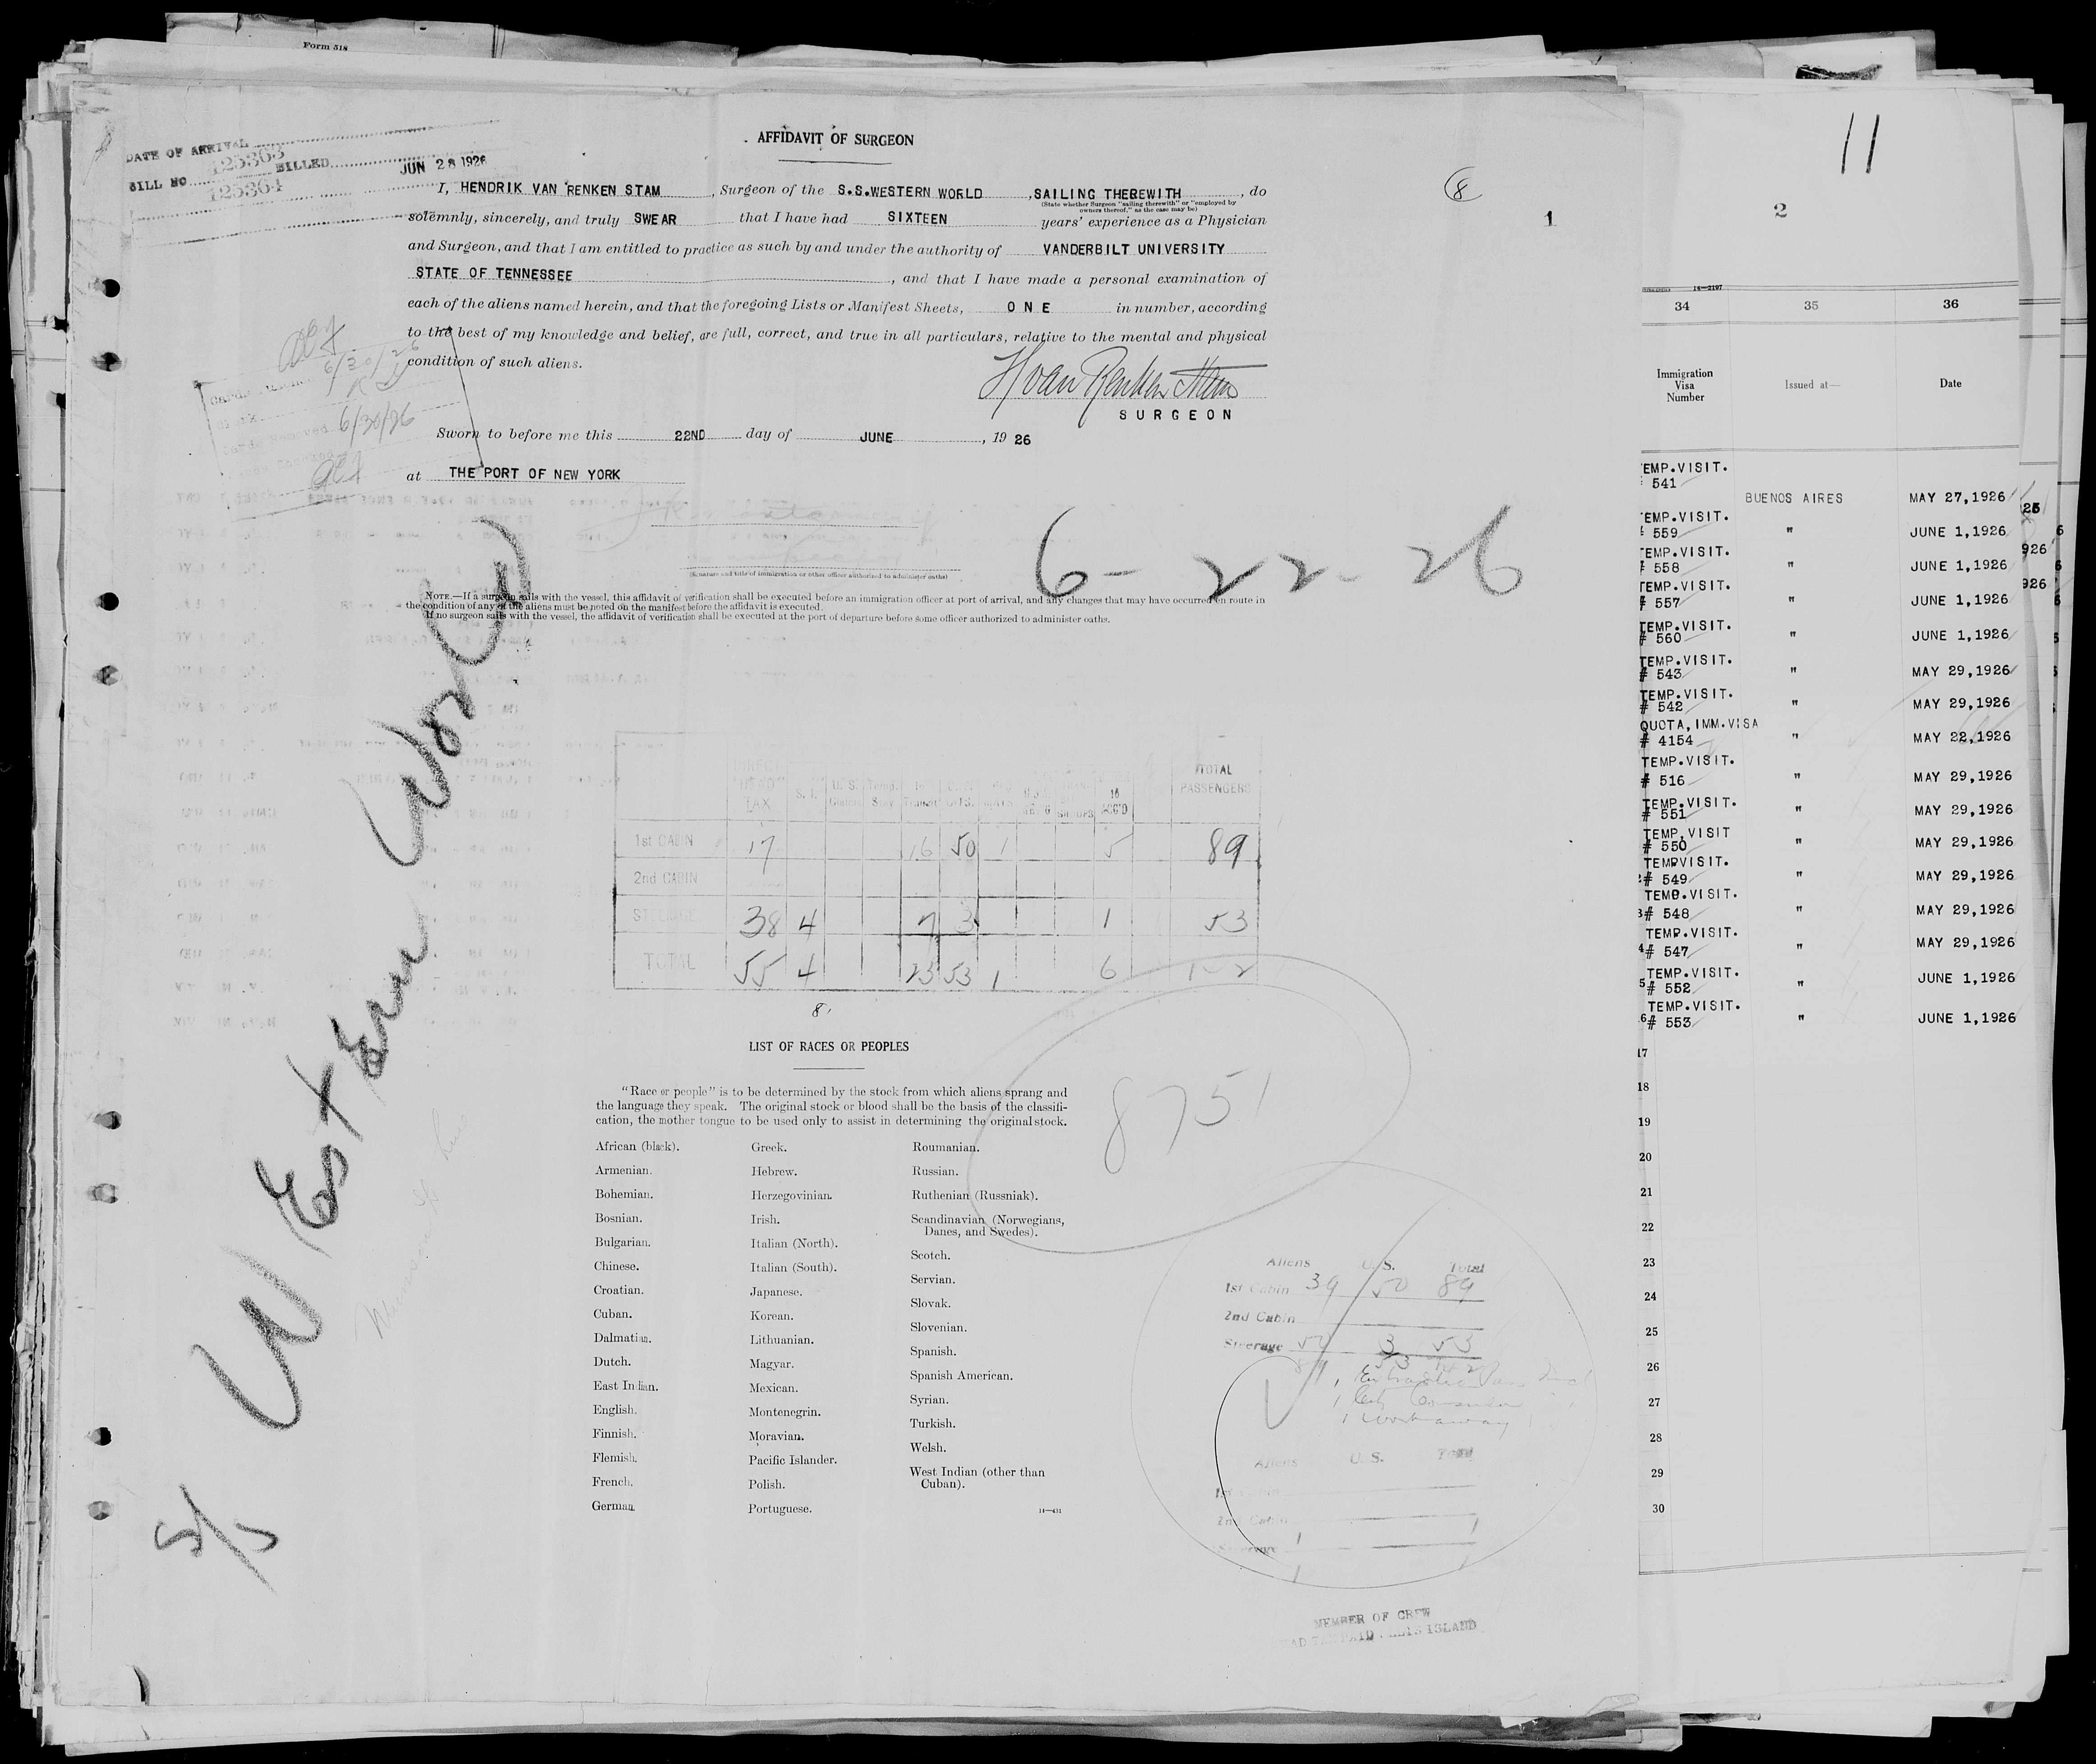 Form 518
DATE OF ARRIVAL
BILL NO 125363 BILLED JUN 28 1926
125364
AFFIDAVIT OF SURGEON
I, HENDRIK VAN RENKEN STAM, Surgeon of the S.S.WESTERN WORLD, SAILING THEREWITH, do
(State whether Surgeon "sailing therewith" or "employed by
owners thereof," as the case may be)
solemnly, sincerely, and truly SWEAR that I have had SIXTEEN years' experience as a Physician
and Surgeon, and that I am entitled to practice as such by and under the authority of VANDERBILT UNIVERSITY
STATE OF TENNESSEE, and that I have made a personal examination of
each of the aliens named herein, and that the foregoing Lists or Manifest Sheets, ONE in number, according
to the best of my knowledge and belief, are full, correct, and true in all particulars, relative to the mental and physical
condition of such aliens.
H van Renken Stam
SURGEON
Sworn to before me this 22ND day of JUNE, 19 26
at THE PORT OF NEW YORK
(Signature and title of immigration or other officer authorized to administer oaths)
6/30/26
6/30/26
8
1
6-22-26
NOTE.—If a surgeon sails with the vessel, this affidavit of verification shall be executed before an immigration officer at port of arrival, and any changes that may have occurred en route in
the condition of any of the aliens must be noted on the manifest before the affidavit is executed.
If no surgeon sails with the vessel, the affidavit of verification shall be executed at the port of departure before some officer authorized to administer oaths.
S/S Western World
DIRECT HEAD TAX S. I. U. S. Temp. Stay Transit TOTAL PASSENGERS
1st CABIN 17 16 50 1 5 89
2nd CABIN
STEERAGE 38 4 7 3 1 53
TOTAL 55 4 23 53 1 6
8
LIST OF RACES OR PEOPLES
"Race or people" is to be determined by the stock from which aliens sprang and
the language they speak. The original stock or blood shall be the basis of the classifi-
cation, the mother tongue to be used only to assist in determining the original stock.
African (black). Greek. Roumanian.
Armenian. Hebrew. Russian.
Bohemian. Herzegovinian. Ruthenian (Russniak).
Bosnian. Irish. Scandinavian (Norwegians,
Danes, and Swedes).
Bulgarian. Italian (North). Scotch.
Chinese. Italian (South). Servian.
Croatian. Japanese. Slovak.
Cuban. Korean. Slovenian.
Dalmatian. Lithuanian. Spanish.
Dutch. Magyar. Spanish American.
East Indian. Mexican. Syrian.
English. Montenegrin. Turkish.
Finnish. Moravian. Welsh.
Flemish. Pacific Islander. West Indian (other than
Cuban).
French. Polish.
German. Portuguese.
14—431
8751
Aliens U. S. Total
1st Cabin 39 50 89
2nd Cabin
Steerage 50 3 53
1 workaway
Aliens U. S. Total
1st Cabin
2nd Cabin
Steerage 1
MEMBER OF CREW
HEAD TAX PAID ELLIS ISLAND
11
2
14—2197
34 35 36
Immigration
Visa
Number
Issued at—
Date
TEMP.VISIT.
# 541 BUENOS AIRES MAY 27,1926
TEMP.VISIT.
# 559 " JUNE 1,1926
TEMP.VISIT.
# 558 " JUNE 1,1926
TEMP.VISIT.
# 557 " JUNE 1,1926
TEMP.VISIT.
# 560 " JUNE 1,1926
TEMP.VISIT.
# 543 " MAY 29,1926
TEMP.VISIT.
# 542 " MAY 29,1926
QUOTA, IMM.VISA
# 4154 " MAY 22,1926
TEMP.VISIT.
# 516 " MAY 29,1926
TEMP.VISIT.
# 551 " MAY 29,1926
TEMP.VISIT
# 550 " MAY 29,1926
TEMPVISIT.
# 549 " MAY 29,1926
TEMP.VISIT.
# 548 " MAY 29,1926
TEMP.VISIT.
# 547 " MAY 29,1926
TEMP.VISIT.
# 552 " JUNE 1,1926
TEMP.VISIT.
# 553 " JUNE 1,1926
17
18
19
20
21
22
23
24
25
26
27
28
29
30